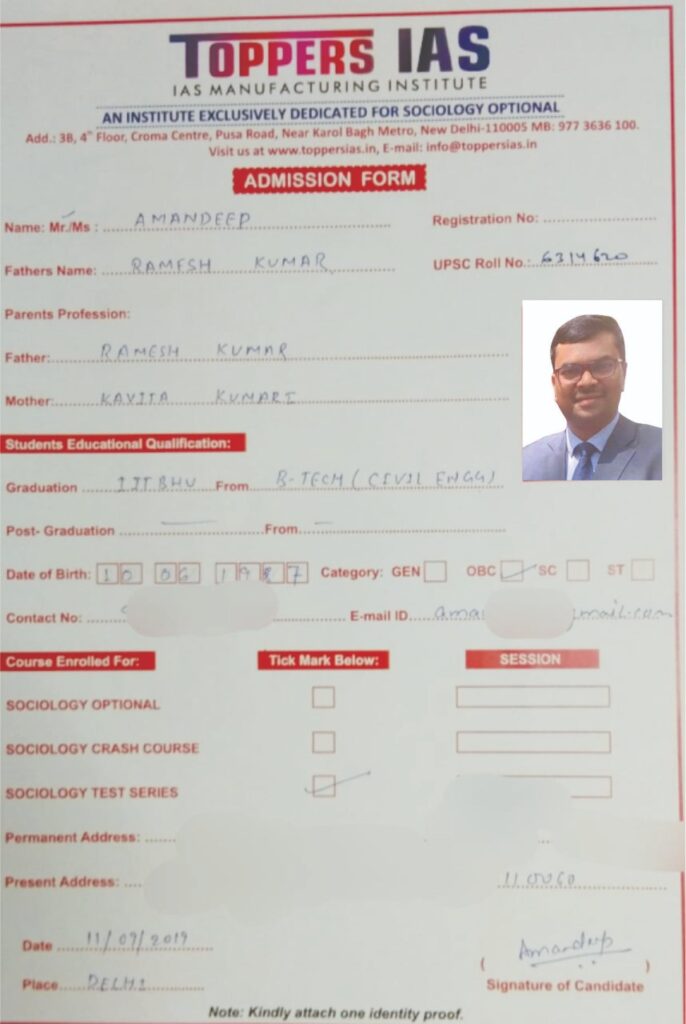 TOPPERS IAS
IAS MANUFACTURING INSTITUTE
AN INSTITUTE EXCLUSIVELY DEDICATED FOR SOCIOLOGY OPTIONAL
Add.: 3B, 4th Floor, Croma Centre, Pusa Road, Near Karol Bagh Metro, New Delhi-110005 MB: 977 3636 100.
Visit us at www.toppersias.in, E-mail: info@toppersias.in
ADMISSION FORM
Name: Mr./Ms : AMANDEEP Registration No:
Fathers Name: RAMESH KUMAR UPSC Roll No.: 6314620
Parents Profession:
Father: RAMESH KUMAR
Mother: KAVITA KUMARI
Students Educational Qualification:
Graduation IIT BHU From B-TECH (CIVIL ENGG)
Post- Graduation — From —
Date of Birth: 10 06 1987 Category: GEN OBC ✓ SC ST
Contact No: E-mail ID ama mail.com
Course Enrolled For: Tick Mark Below: SESSION
SOCIOLOGY OPTIONAL
SOCIOLOGY CRASH COURSE
SOCIOLOGY TEST SERIES ✓
Permanent Address:
Present Address: 110060
Date 11/09/2019 Amandeep
Place DELHI ( ) Signature of Candidate
Note: Kindly attach one identity proof.